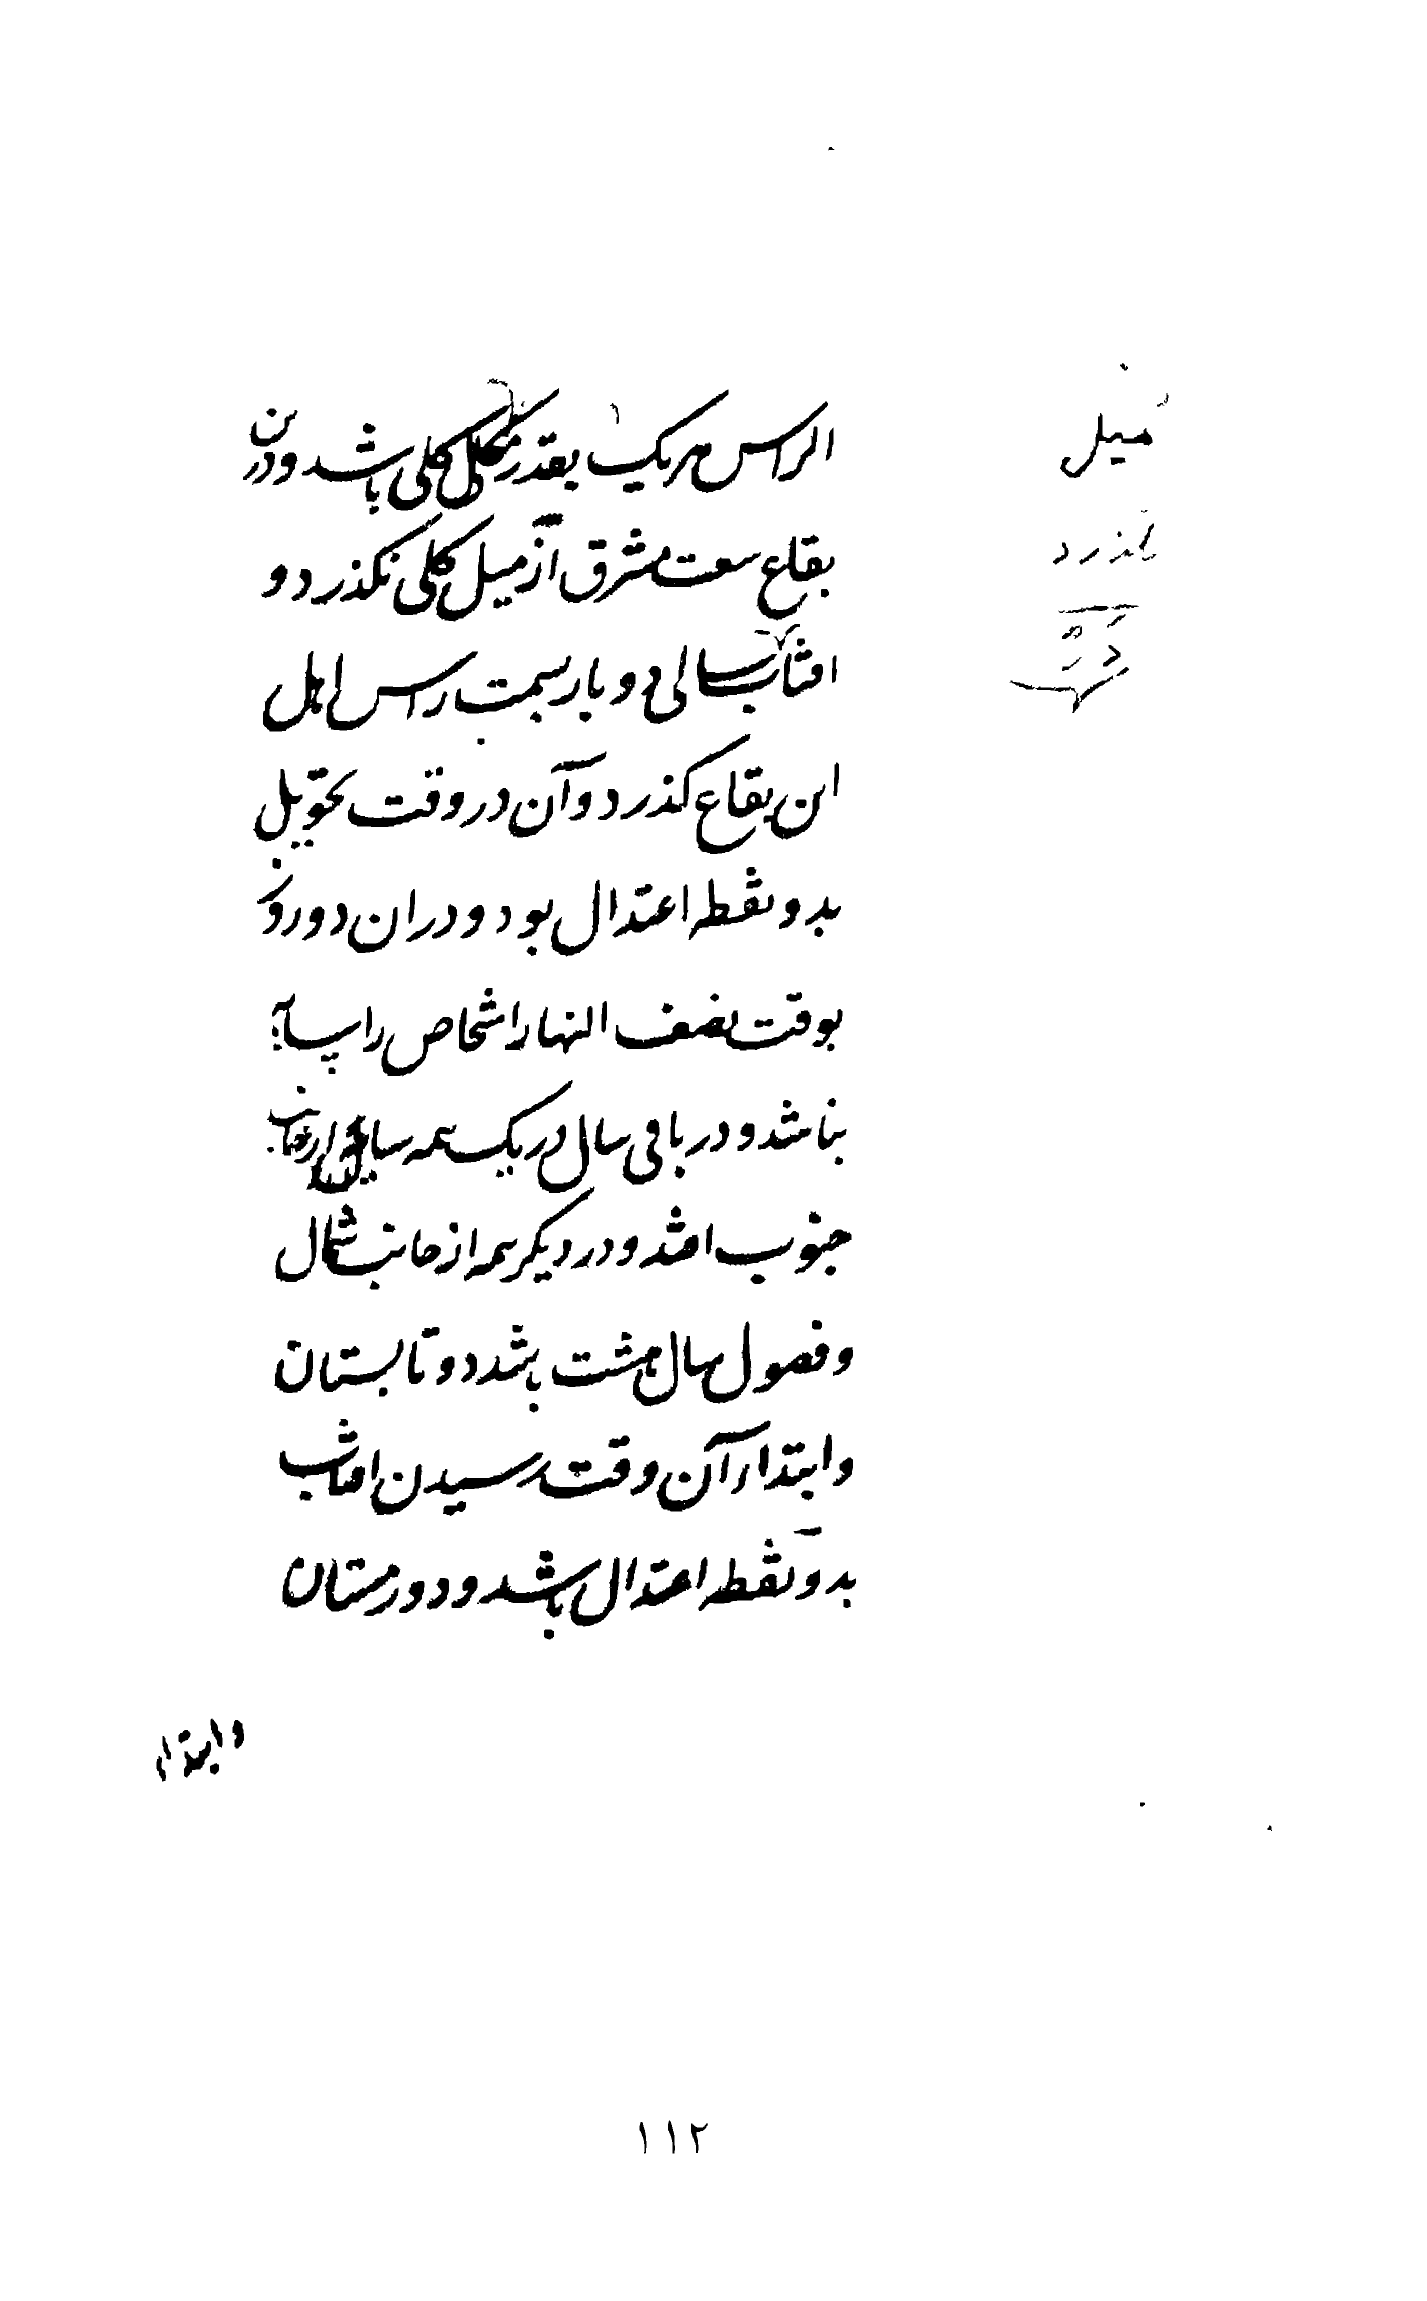 الراس هر یک بقدر میل کلی باشد و درین
بقاع سعت مشرق از میل کلی نکذرد و
افتاب سالی دو بار بسمت راس اهل
این بقاع کذرد و آن در وقت تحویل
بدو نقطه اعتدال بود و دران دو روز
بوقت نصف النهار اشخاص را سایه
نباشد و در باقی سال در یک نیمه سایه از جانب
جنوب افتد و در دیکر نیمه از جانب شمال
و فصول سال هشت باشد دو تابستان
و ابتداء آن وقت رسیدن افتاب
بدو نقطه اعتدال باشد و دو زمستان
و ابتداء
میل
نکذرد
۱۱۲